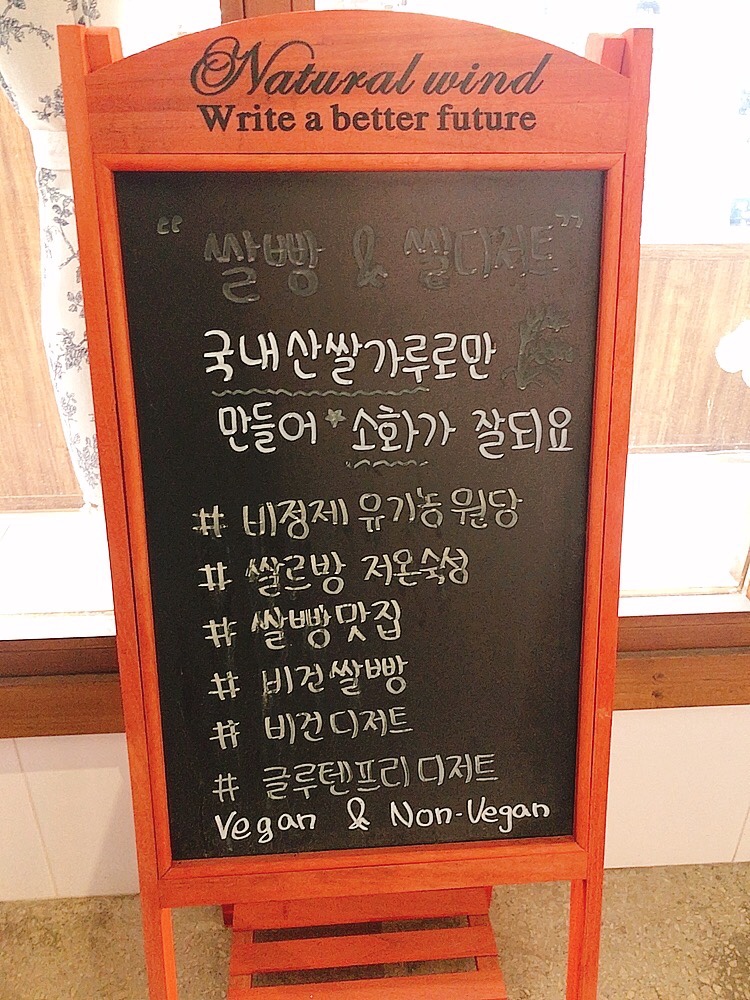 Natural wind
Write a better future
"쌀빵 & 쌀디저트"
국내산쌀가루로만
만들어 소화가 잘되요
# 비정제 유기농 원당
# 쌀르방 저온숙성
# 쌀빵맛집
# 비건쌀빵
# 비건디저트
# 글루텐프리 디저트
Vegan & Non-Vegan